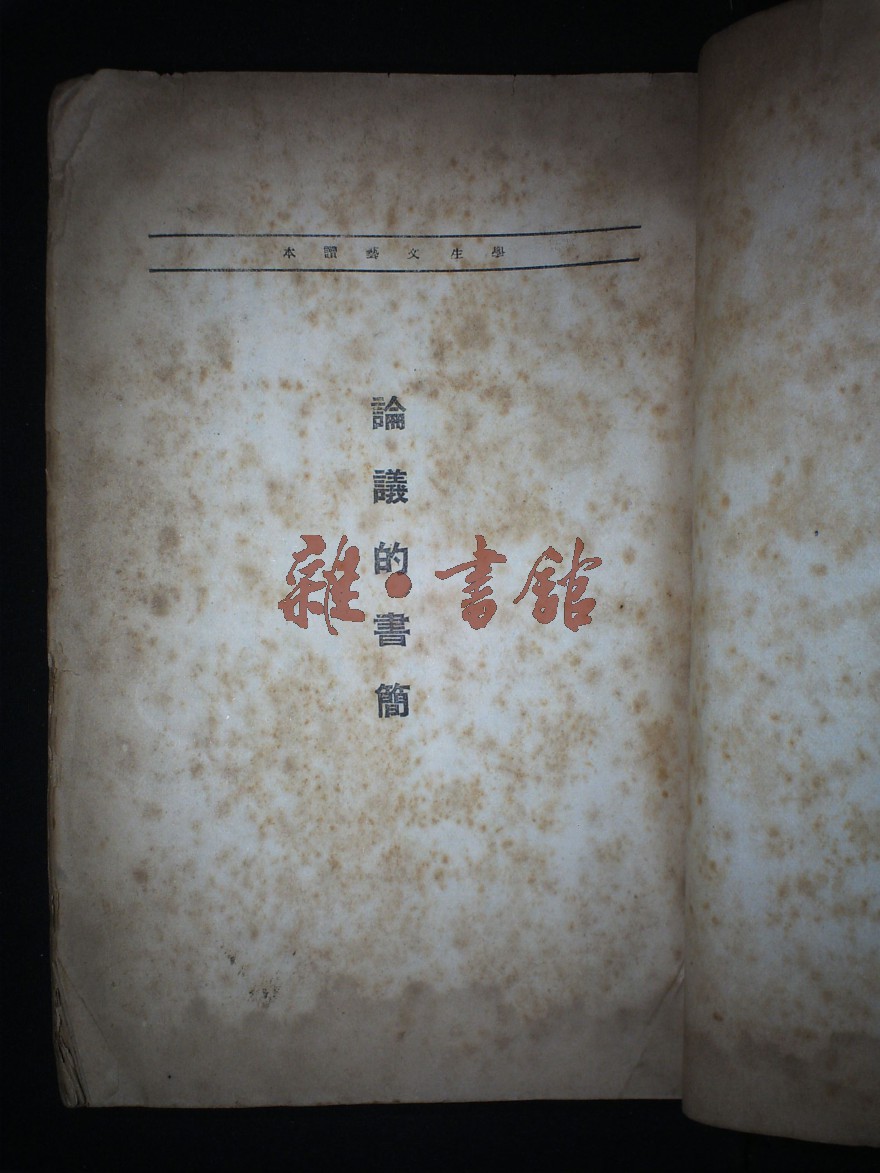 學生文藝讀本
論議的書簡
雜·書館